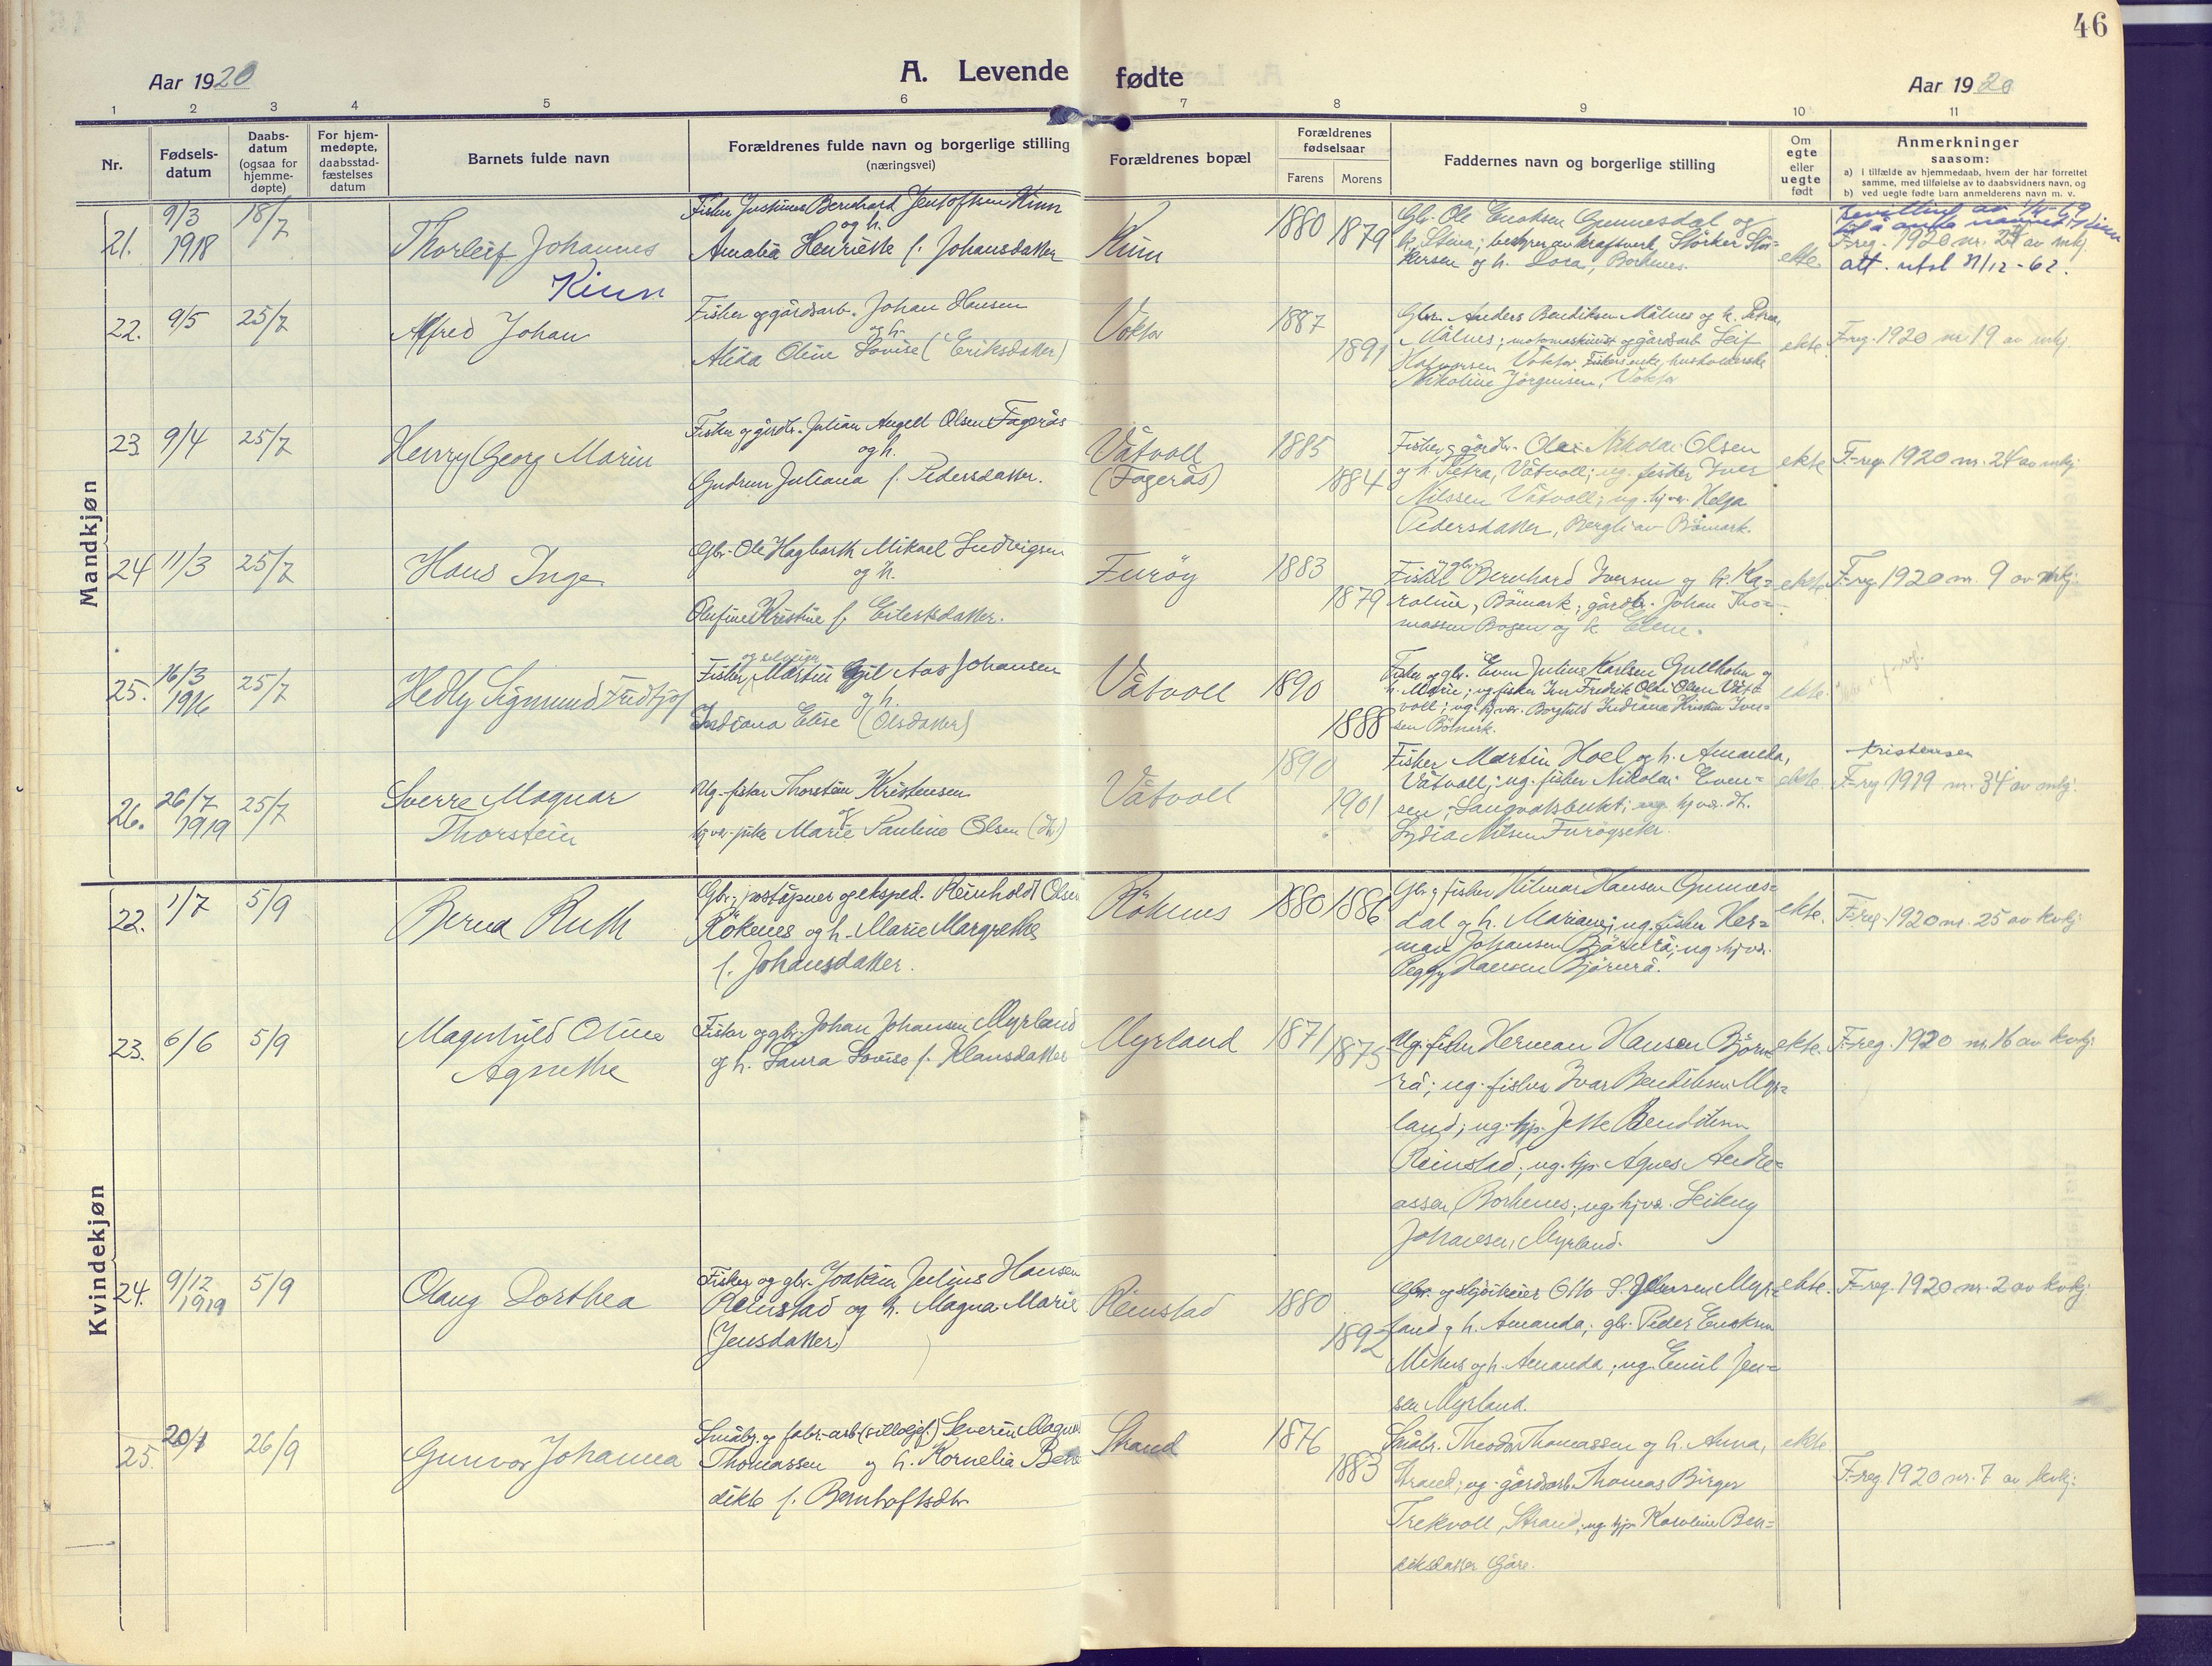 46
Aar 1920
A. Levende fødte
Aar 1920
1 2 3 4 5 6 7 8 9 10 11
Nr.
Fødsels-
datum
Daabs-
datum
(ogsaa for
hjemme-
døpte)
For hjem-
medøpte,
daabsstad-
fæstelses
datum
Barnets fulde navn
Forældrenes fulde navn og borgerlige stilling
(næringsvei)
Forældrenes bopæl
Forældrenes
fødselsaar
Farens Morens
Faddernes navn og borgerlige stilling
Om
egte
eller
uegte
født
Anmerkninger
saasom:
a) i tilfælde av hjemmedaab, hvem der har forrettet
samme, med tilføielse av to daabsvidners navn, og
b) ved uegte fødte barn anmelderens navn m. v.
Mandkjøn
21. 9/3 1918 18/7
Thorleif Johannes
Kinn
Fisker Justinus Bernhard Jentoftsen Kinn
og h.
Amalia Henriette f. Johansdatter
Kinn
1880 1879
Gbr. Ole Enoksen Gunnesdal og
h. Stina; bestyrer av kraftverk, Störker Stör-
kersen og h. Dora, Borkenes.
ekte.
F-reg. 1920 nr. 24 av mkj
att. utst 31/12-62.
22. 9/5 25/7
Alfred Johan
Fisker og gårdsarb. Johan Hansen
og h.
Alida Oline Lovise (Eriksdatter)
Voktor
1887 1891
Gbr. Anders Bendiksen Målnes og h. Petra,
Målnes; motormaskinist og gårdsarb. Leif
Halvorsen Voktor, Fiskers enke, husholderske
Nikoline Jörgensen, Voktor
ekte.
F-reg. 1920 nr 19 av mkj.
23 9/4 25/7
Henry Georg Marin
Fisker og gårdbr. Julian Angell Olsen Fagerås
og h.
Gudrun Juliana f. Pedersdatter.
Våtvoll
(Fagerås)
1885 1884
Fisker og gårdbr. Ole Nikolai Olsen
og h. Petra, Våtvoll; ug. fisker Iver
Nilssen Våtvoll; ug. hj.vær. Helga
Pedersdatter, Bergli av Bömark.
ekte
F-reg. 1920 nr. 24 av mkj
24 11/3 25/7
Hans Inge
Gbr. Ole Hagbarth Mikael Ludvigsen
og h.
Olufine Kristine f. Eilertsdatter.
Furöy
1883 1879
Fisker og gbr. Bernhard Iversen og h. Ka-
roline, Bömark; gårdbr. Johan Tho-
massen Bogen og h. Elene.
ekte.
F-reg 1920 nr. 9 av mkj.
25. 16/3 1916 25/7
Hedly Sigmund Fridtjof
Fisker og selveier Martin Egil Aas Johansen
og h.
Indiana Elise (Olsdatter)
Våtvoll
1890 1888
Fisker og gbr. Even Julius Karlsen Gullholm og
h. Marie; ug. fisker Iver Fredrik Olai Olsen Våt-
voll; ug. hj.vær. Borghild Indiana Kristin Iver-
sen Bömark.
ekte.
26. 26/7 1919 25/7
Sverre Magnar
Thorstein
Ug. fisker Thorstein Kristensen
og
hj.vær. pike Marie Pauline Olsen (dtr)
Våtvoll
1890 1901
Fisker Martin Hoel og h. Amanda,
Våtvoll; ug. fisker Nikolai Even-
sen, Langvatsbukt; ug. hj.vær. dt.
Lydia Nilsen Furöyseter.
ekte.
Kristensen
F-reg 1919 nr. 34 av mkj.
Kvindekjøn
22. 1/7 5/9
Berna Ruth
Gbr., poståpner og eksped. Reinholdt Olsen
Rökenes og h. Marie Margrethe
f. Johansdatter.
Rökenes
1880 1886
Gbr. og fisker Hilmar Hansen Gunnes-
dal og h. Mariane; ug. fisker Her-
man Johansen Björnrå; ug. hj.vær.
Peggy Hansen Björnrå.
ekte.
F-reg. 1920 nr. 25 av kvkj
23. 6/6 5/9
Magnhild Oline
Agnethe
Fisker og gbr. Johan Johansen Myrland
og h. Laura Lovise f. Klausdatter
Myrland
1871 1875
Ug. fisker Herman Hansen Björn-
rå; ug. fisker Ivar Bendiksen Myr-
land; ug. tjp. Jette Bendiksen
Reinstad; ug. tjp. Agnes Andre-
assen, Borkenes; ug. hj.vær. Leikny
Johansen, Myrland.
ekte.
F-reg. 1920 nr. 16 av kvkj.
24. 9/12 1919 5/9
Olaug Dorthea
Fisker og gbr. Joakim Julius Hansen
Reinstad og h. Magna Marie
(Jensdatter)
Reinstad
1880 1892
Gbr. og Otto S. Johansen Myr-
land og h. Amanda; gbr. Peder Enoksen
og h. Amanda; ug. Emil Jen-
sen Myrland.
ekte.
F-reg. 1920 nr. 2 av kvkj
25. 20/1 26/9
Gunvor Johanna
Småbr. og fabr.-arb. (sildoljef.) Severin Magnus
Thomassen og h. Kornelia Bene-
dikte f. Bernhoftsdtr
Strand
1876 1883
Småbr. Theodor Thomassen og h. Anna,
Strand; ug. gårdsarb. Thomas Birger
Trekvoll, Strand; ug. tjp. Karoline Ben-
diksdatter Gåre.
ekte
F-reg 1920 nr. 7 av kvkj.